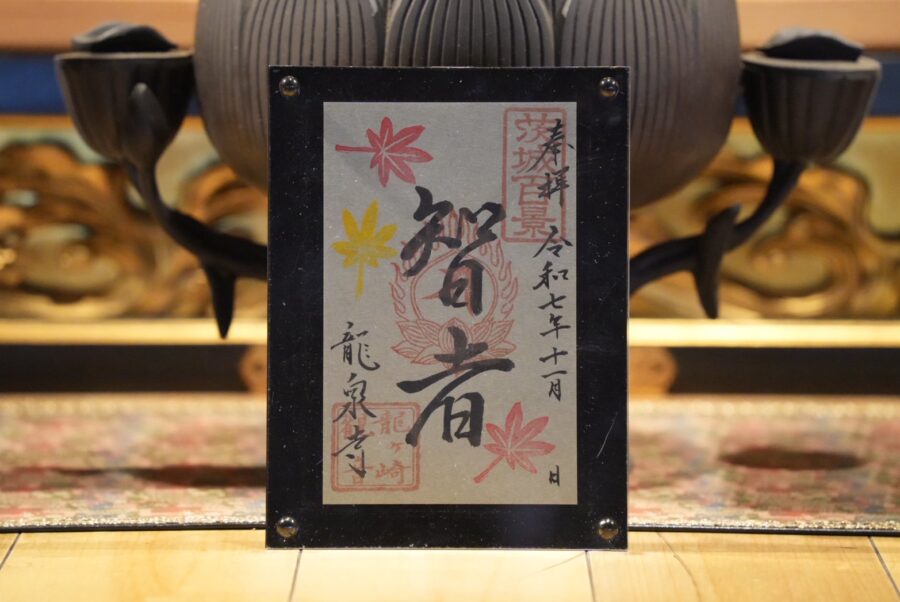 茨城百景
奉拝 令和七年十一月 日
智者
龍泉寺
龍ヶ崎